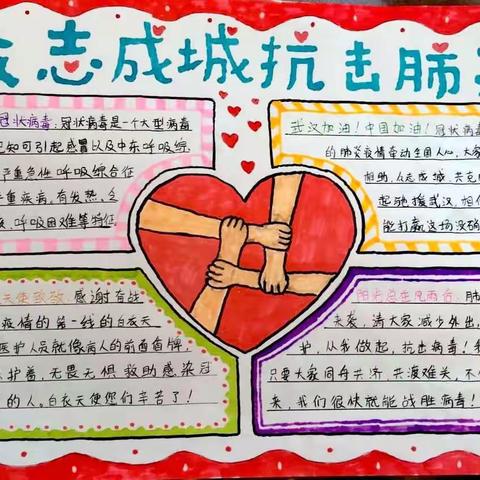 众志成城抗击肺
冠状病毒:冠状病毒是一个大型病毒
已知可引起感冒以及中东呼吸综
严重急性呼吸综合征
重疾病,有发热、乏
呼吸困难等特征
武汉加油!中国加油!冠状病毒
的肺炎疫情牵动全国人心,大家
相助,众志成城,共克
起驰援武汉,相信
能打赢这场没硝
天使致敬:感谢奋战
疫情的第一线的白衣天
医护人员就像病人的前面盾牌,
护着,无畏无惧救助感染冠
的人。白衣天使您们辛苦了!
阳光总在风雨后:肺
来袭,请大家减少外出,
护,从我做起,抗击病毒!我
只要大家同舟共济,共渡难关,不
来,我们很快就能战胜病毒!